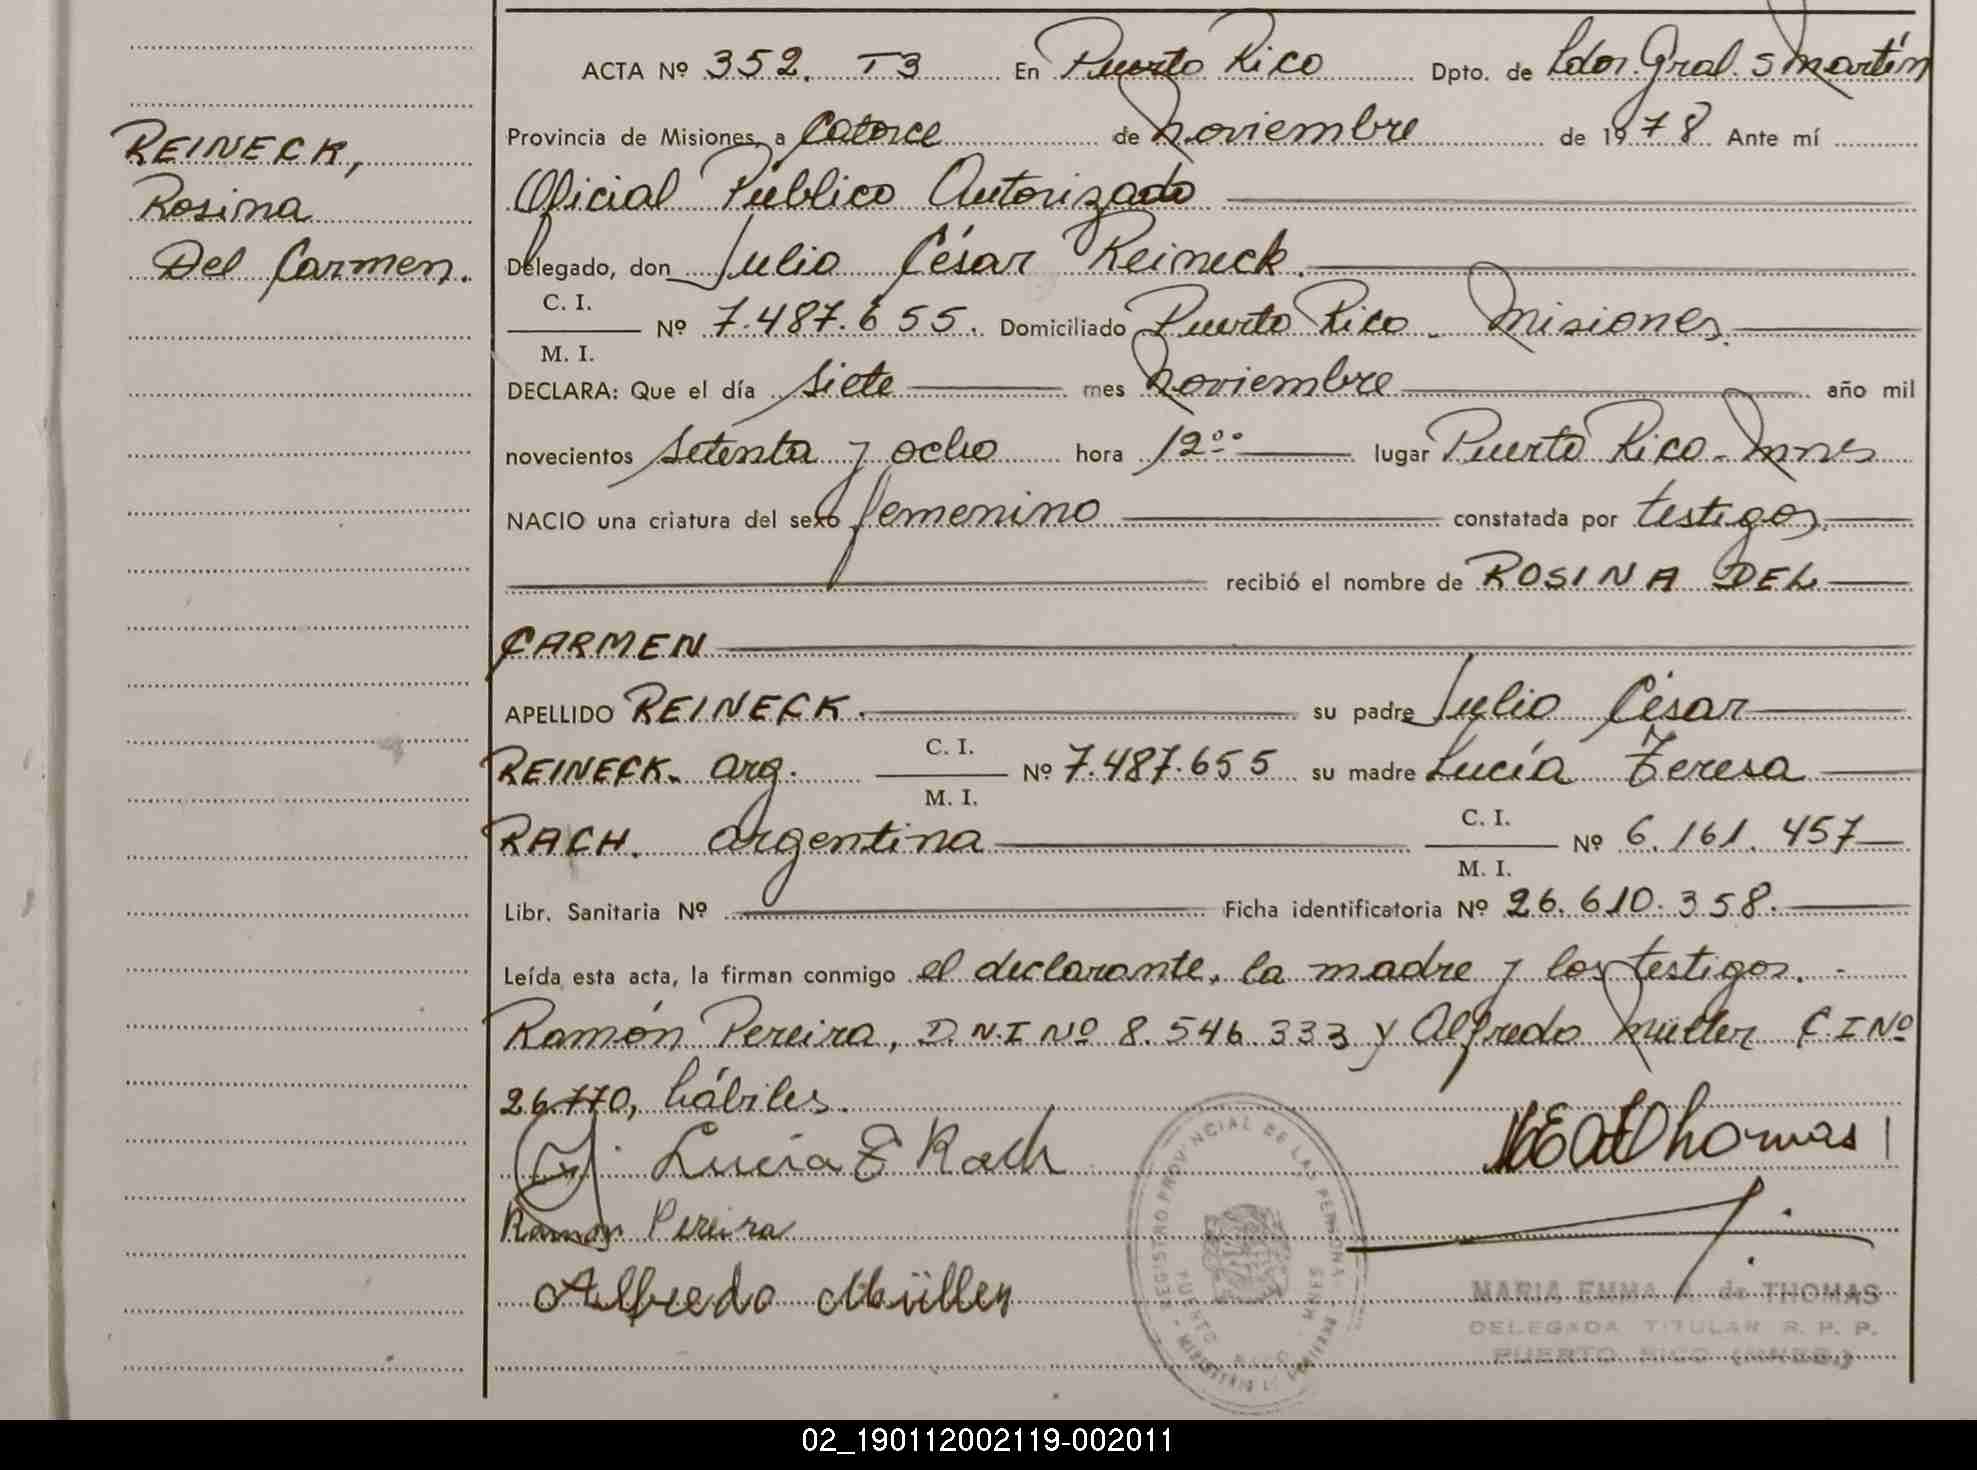 REINECK,
Rosina
Del Carmen.
ACTA Nº 352. T3 En Puerto Rico Dpto. de Ldor. Gral. S Martín
Provincia de Misiones, a Catorce de Noviembre de 1978 Ante mí
Oficial Público Autorizado
Delegado, don Julio César Reineck.
C. I.
Nº 7.487.655. Domiciliado Puerto Rico - Misiones.
M. I.
DECLARA: Que el día siete mes Noviembre año mil
novecientos setenta y ocho hora 12ºº lugar Puerto Rico - Mnes
NACIO una criatura del sexo femenino constatada por testigos.
recibió el nombre de ROSINA DEL
CARMEN
APELLIDO REINECK. su padre Julio César
REINECK. arg. C. I. Nº 7.487.655 su madre Lucía Teresa
M. I.
RACH. argentina C. I. Nº 6.161.457
M. I.
Libr. Sanitaria Nº Ficha identificatoria Nº 26.610.358.
Leída esta acta, la firman conmigo el declarante, la madre y los testigos. -
Ramón Pereira, D.N.I Nº 8.546.333 y Alfredo Müller C.I Nº
26.770, hábiles.
Lucía T Rach
Thomas
Ramon Pereira
Alfredo Müller
REGISTRO PROVINCIAL DE LAS PERSONAS
PUERTO RICO - MNES
MINISTERIO DE GOBIERNO
MARIA EMMA de THOMAS
DELEGADA TITULAR R. P. P.
PUERTO RICO (MNES.)
02_190112002119-002011